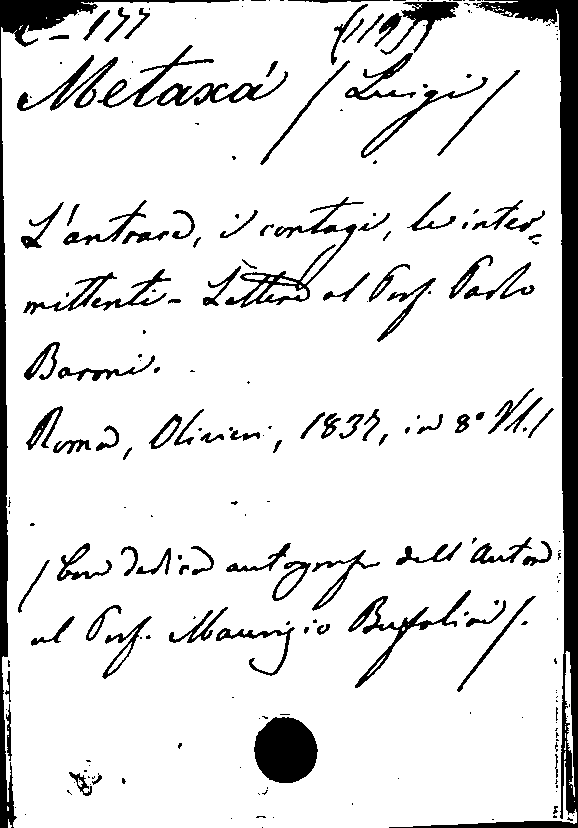 C-177 (119)
Metaxá /Luigi/
L'antrace, i contagi, le inter=
mittenti - Lettere al Prof. Paolo
Baroni.
Roma, Olivieri, 1837, in 8°
/Con dedica autografa dell'Autore
al Prof. Maurizio Bufalini/.